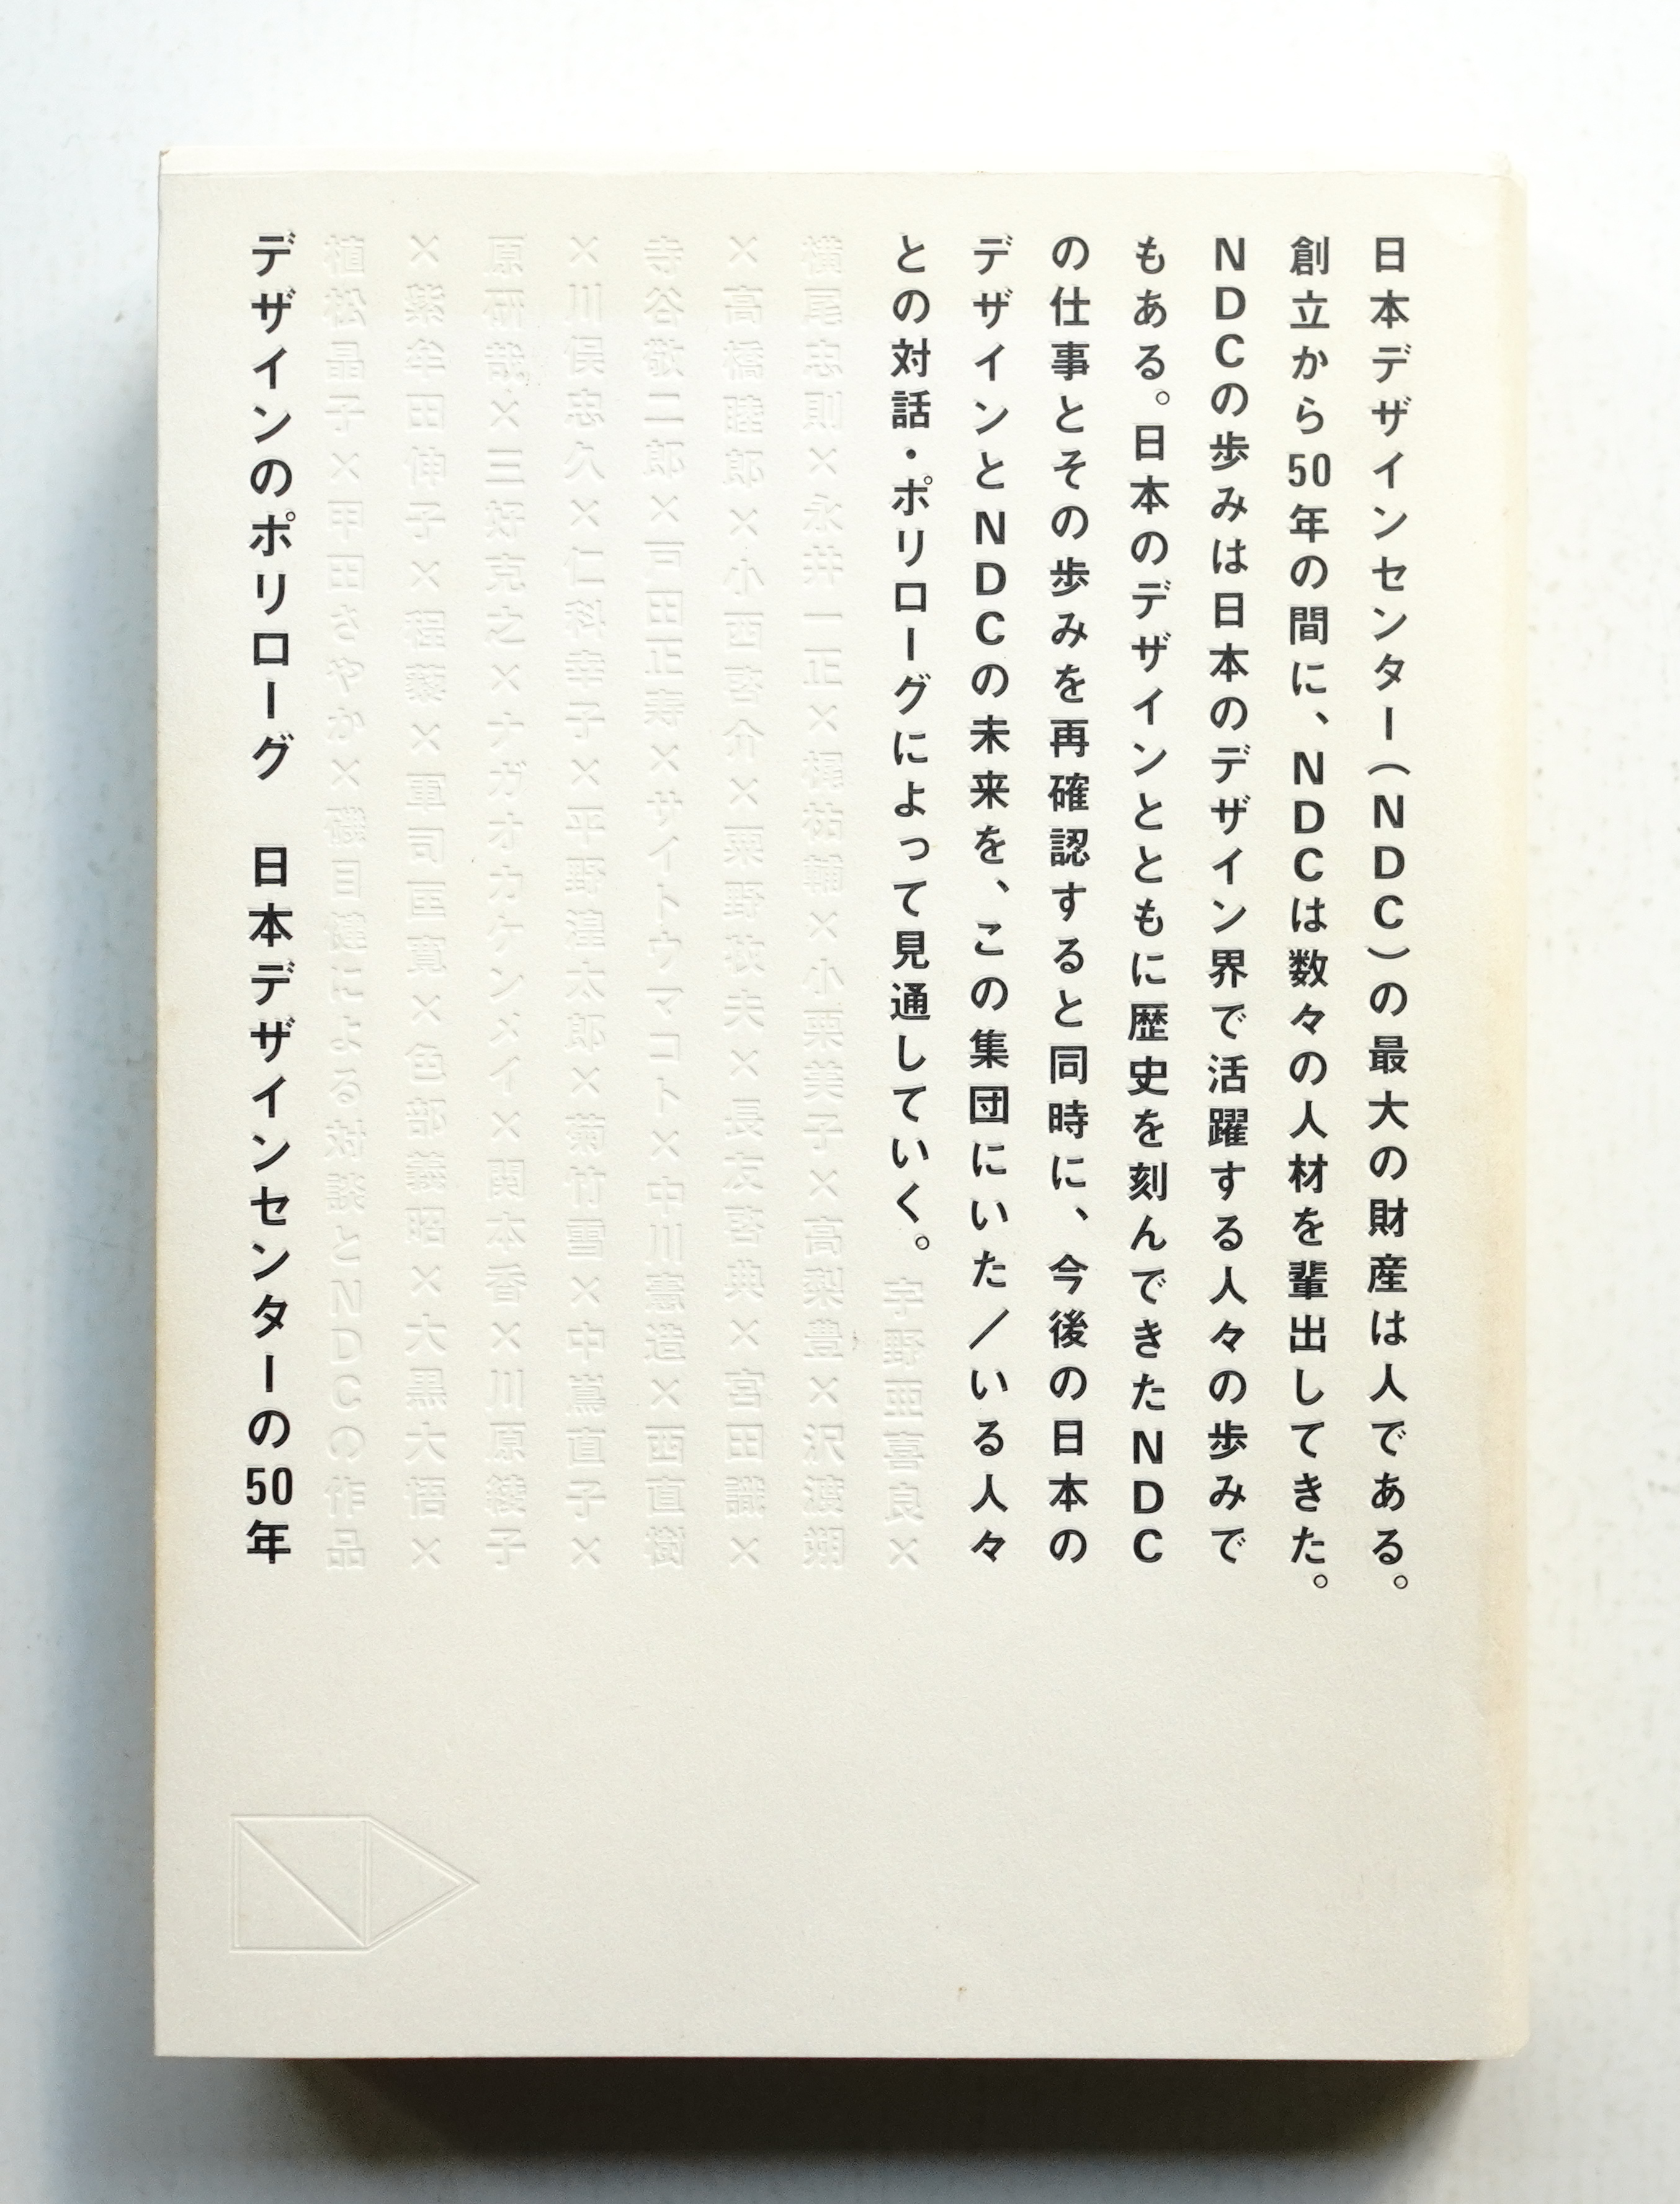 日本デザインセンター（NDC）の最大の財産は人である。
創立から50年の間に、NDCは数々の人材を輩出してきた。
NDCの歩みは日本のデザイン界で活躍する人々の歩みで
もある。日本のデザインとともに歴史を刻んできたNDC
の仕事とその歩みを再確認すると同時に、今後の日本の
デザインとNDCの未来を、この集団にいた／いる人々
との対話・ポリローグによって見通していく。宇野亜喜良×
横尾忠則×永井一正×梶祐輔×小栗美子×高梨豊×沢渡朔
×高橋睦郎×小西啓介×栗野牧夫×長友啓典×宮田識×
寺谷敬二郎×戸田正寿×サイトウマコト×中川憲造×西直樹
×川俣忠久×仁科幸子×平野湟太郎×菊竹雪×中嶌直子×
原研哉×三好克之×ナガオカケンメイ×関本香×川原綾子
×紫牟田伸子×程藜×軍司匡寛×色部義昭×大黒大悟×
植松晶子×甲田さやか×磯目健による対談とNDCの作品
デザインのポリローグ　日本デザインセンターの50年